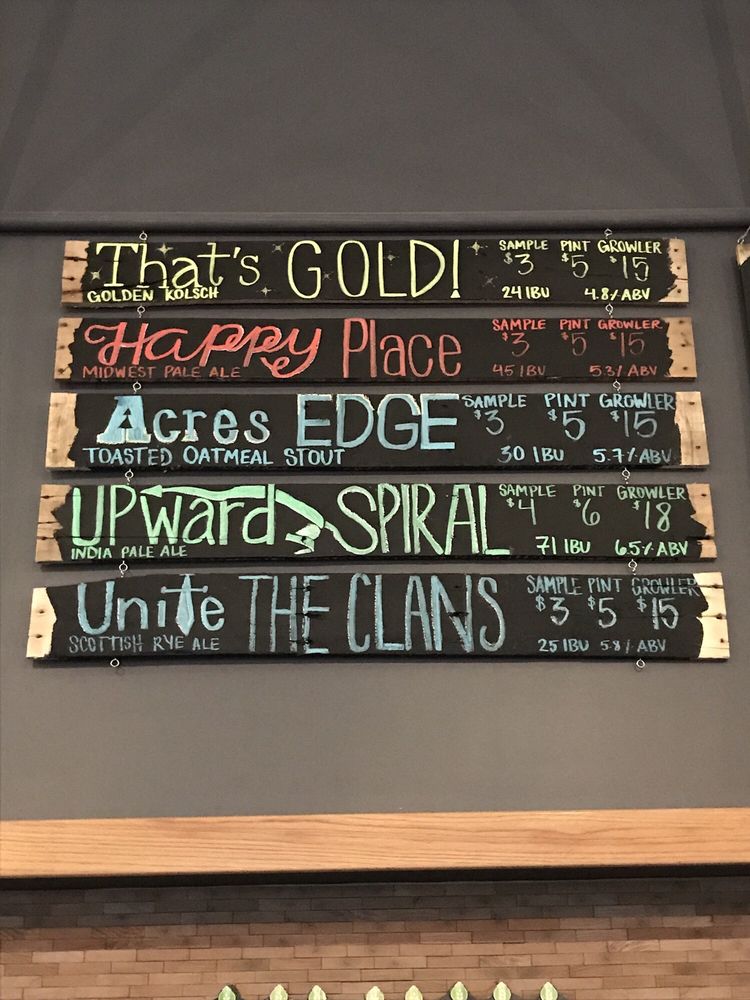 That's GOLD! SAMPLE PINT GROWLER
$3 $5 $15
GOLDEN KOLSCH 24 IBU 4.8% ABV
Happy Place SAMPLE PINT GROWLER
$3 $5 $15
MIDWEST PALE ALE 45 IBU 5.3% ABV
Acres EDGE SAMPLE PINT GROWLER
$3 $5 $15
TOASTED OATMEAL STOUT 30 IBU 5.7% ABV
UPward SPIRAL SAMPLE PINT GROWLER
$4 $6 $18
INDIA PALE ALE 71 IBU 6.5% ABV
Unite THE CLANS SAMPLE PINT GROWLER
$3 $5 $15
SCOTTISH RYE ALE 25 IBU 5.8% ABV